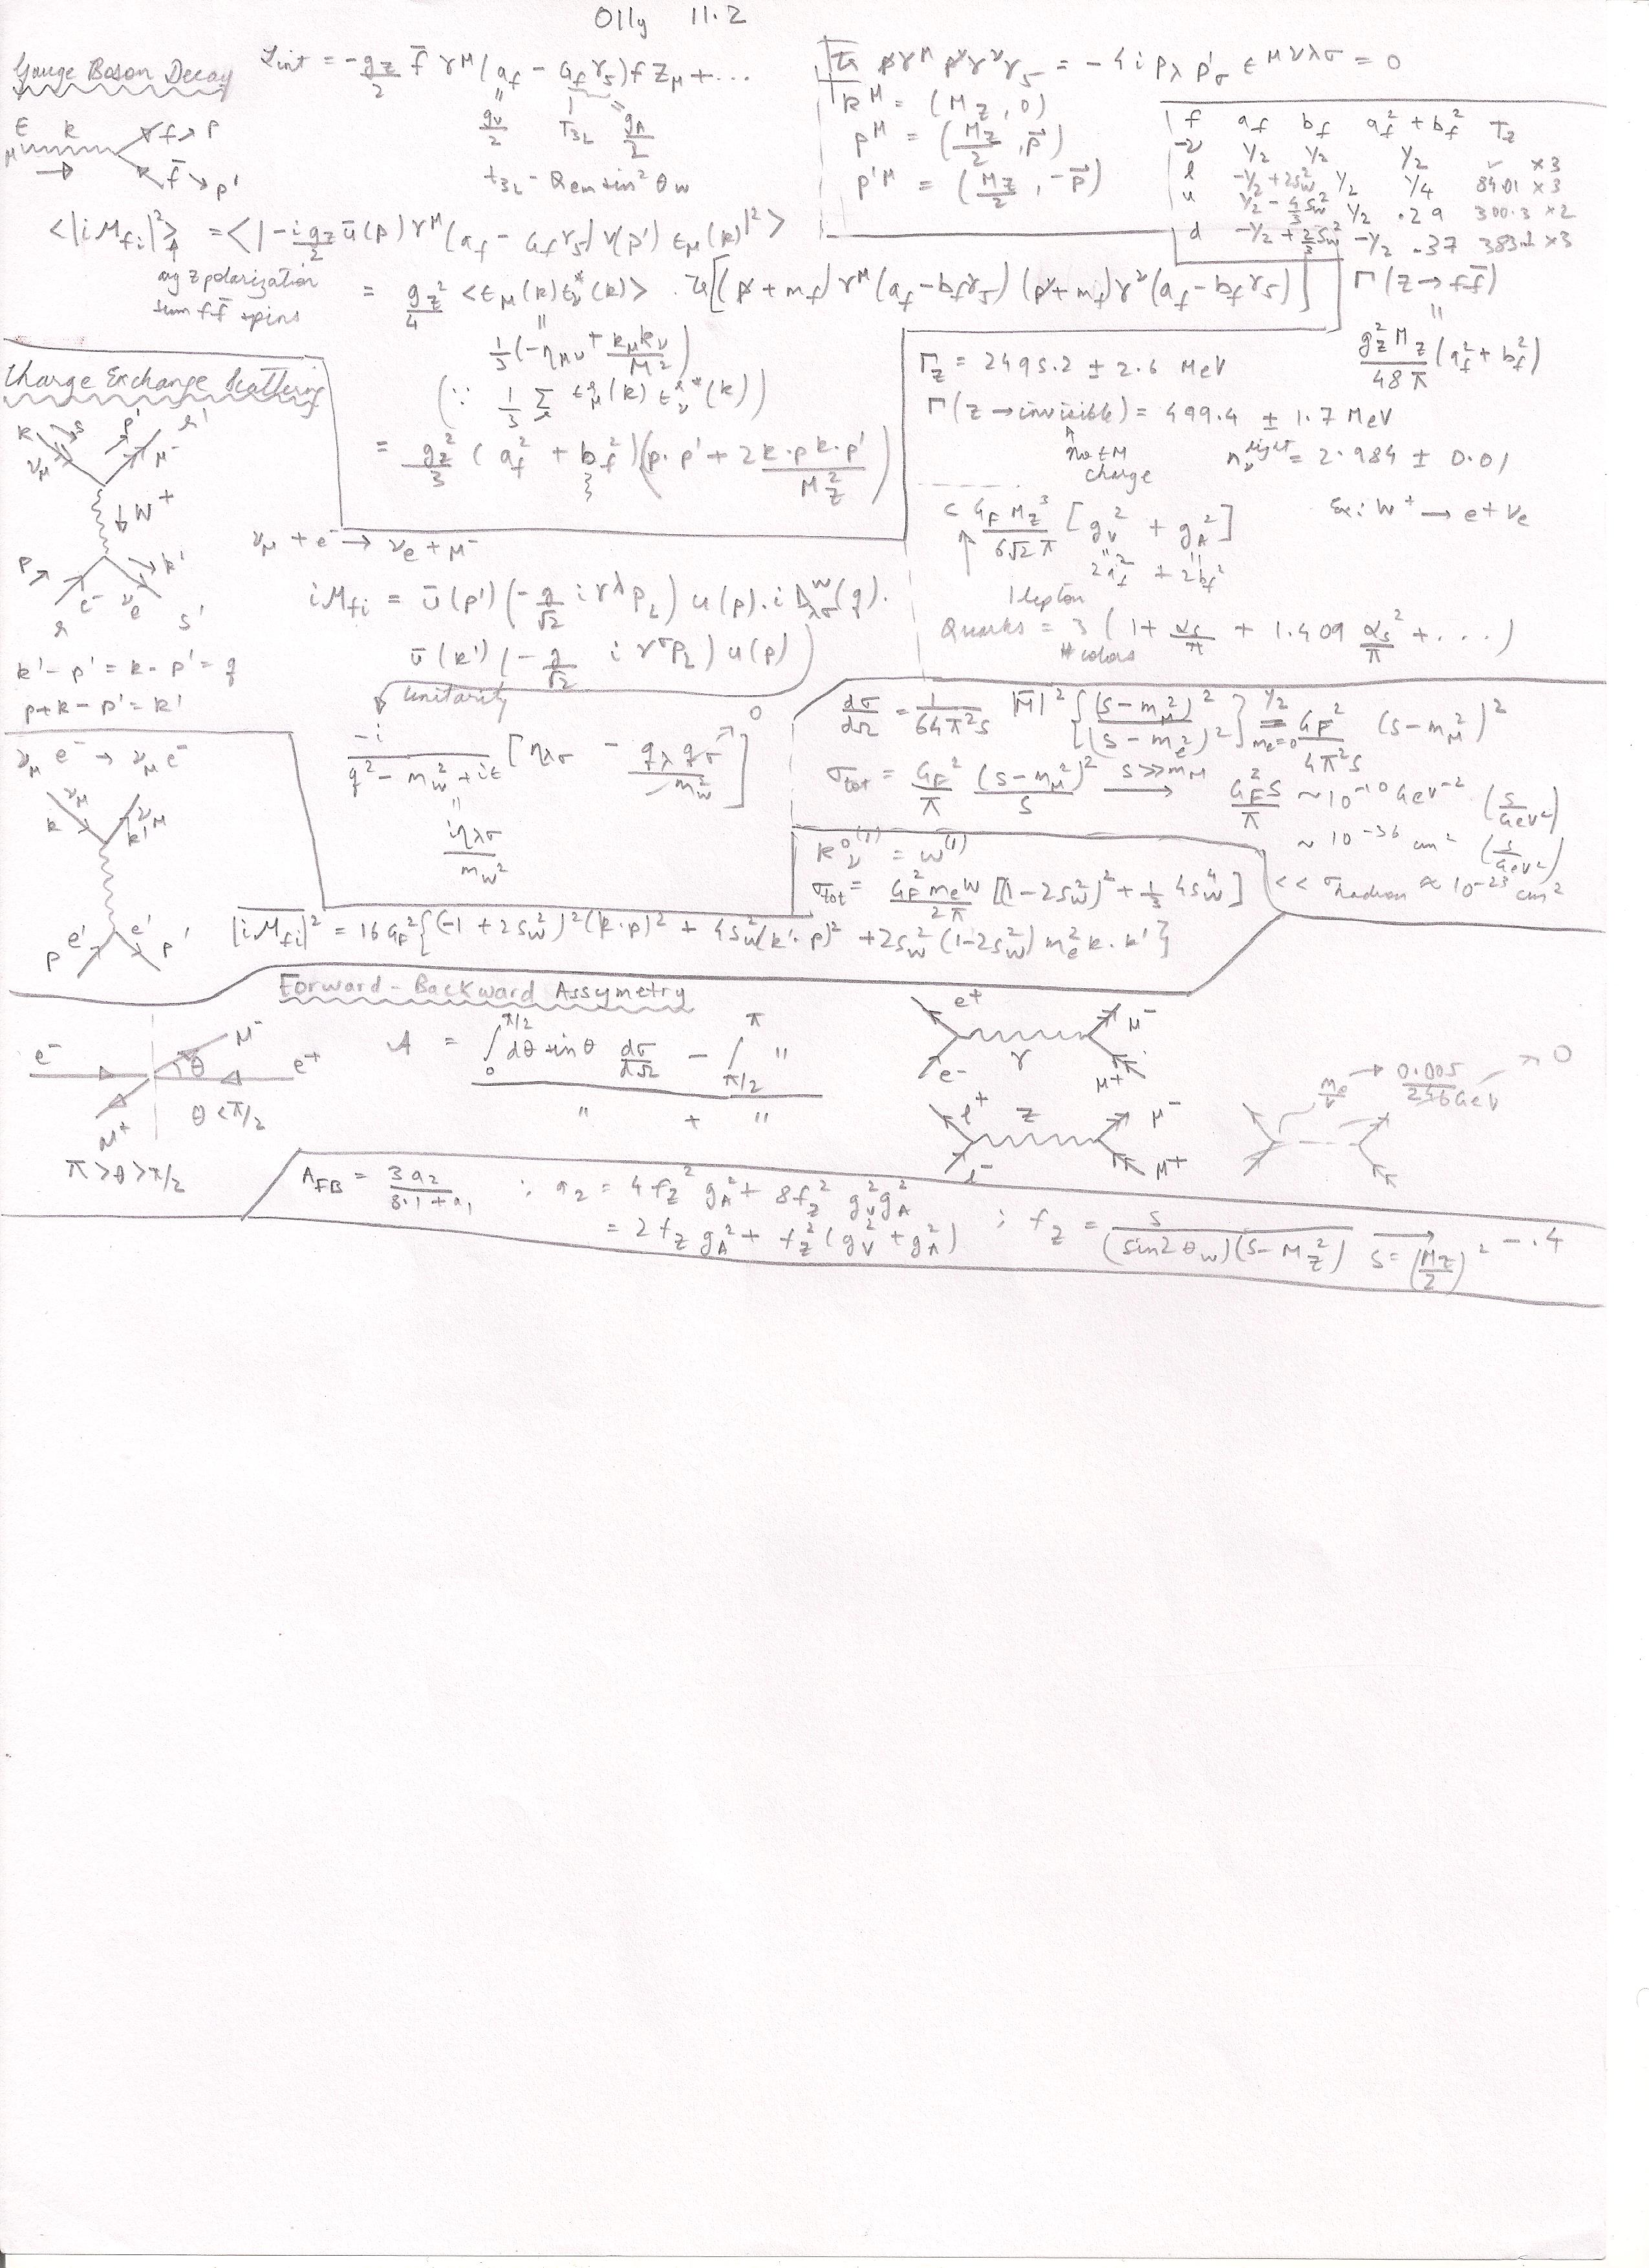 Olly 11.2
Gauge Boson Decay
Lint = -g_z/2 f̄ γ^M (a_f - b_f γ_5) f Z_M + ...
g_V/2 T_3L g_A/2
t_3L - Q em sin² θ_W
ε k f → p
M f̄ → p'
<|iM_fi|²> = <|-i g_z/2 ū(p) γ^M (a_f - b_f γ_5) v(p') ε_M(k)|²>
avg z polarization
sum f f̄ spins
= g_z²/4 <ε_M(k) ε_ν*(k)> . Tr[(p̸ + m_f) γ^M (a_f - b_f γ_5) (p̸ + m_f) γ^ν (a_f - b_f γ_5)]
1/3 (-η_Mν + k_M k_ν / M²)
(∵ 1/3 Σ ε_M^λ(k) ε_ν^λ*(k))
= g_z²/3 (a_f² + b_f²)(p.p' + 2 k.p k.p' / M_z²)
Tr p̸ γ^M p̸' γ^ν γ_5 = -4 i p_λ p'_σ ε^{Mνλσ} = 0
k^M = (M_z, 0)
p^M = (M_z/2, p⃗)
p'^M = (M_z/2, -p⃗)
f a_f b_f a_f² + b_f² Γ_z
ν 1/2 1/2 1/2 ✓ ×3
l -1/2 + 2s_w² 1/2 1/4 84.01 ×3
u 1/2 - 4/3 s_w² 1/2 .29 300.3 ×2
d -1/2 + 2/3 s_w² -1/2 .37 383 ×3
Γ(Z → f f̄)
=
g_z² M_z / 48π (a_f² + b_f²)
Γ_z = 2495.2 ± 2.6 MeV
Γ(Z → invisible) = 499.4 ± 1.7 MeV
no EM
charge
n_ν^light = 2.984 ± 0.01
c G_F M_z³ / 6√2 π [g_V² + g_A²]
2a_f² + 2b_f²
Ex: W⁺ → e + ν_e
1 lepton
Quarks = 3 (1 + α_s/π + 1.409 α_s²/π + . . . )
# colors
Charge Exchange Scattering
k s p' r'
ν_M M⁻
↓ W⁺
p k'
e⁻ ν_e
r s'
k' - p' = k - p' = q
p + k - p' = k'
ν_M + e⁻ → ν_e + M⁻
iM_fi = ū(p') (-g/√2 i γ^λ P_L) u(p) . i Δ_λσ^W (q) .
ū(k') (-g/√2 i γ^σ P_L) u(p)
Unitarity
-i / q² - m_w² + iε [η_λσ - q_λ q_σ / m_w²] 0
=
iη_λσ / m_w²
dσ/dΩ = 1/64π²s |M|² {(s - m_M²)² / (s - m_e²)²}^1/2 = m_e=0 G_F²/4π²s (s - m_M²)²
σ_tot = G_F²/π (s - m_M²)²/s s≫m_M → G_F² s/π ~ 10⁻¹⁰ GeV⁻² (s/GeV²)
~ 10⁻³⁶ cm² (s/GeV²)
<< σ_hadron ≈ 10⁻²³ cm²
ν_M e⁻ → ν_M e⁻
ν_M ν_M
k k'
e' e'
p p'
k_ν^0(1) = w^(1)
σ_tot = G_F² m_e w / 2π [(1 - 2s_w²)² + 1/3 4s_w⁴]
|iM_fi|² = 16 G_F² {(-1 + 2s_w²)² (k.p)² + 4s_w² (k'.p)² + 2s_w² (1 - 2s_w²) m_e² k.k'}
Forward - Backward Assymetry
e⁻ M⁻ θ e⁺
M⁺ θ < π/2
π > θ > π/2
A = ∫_0^π/2 dθ sinθ dσ/dΩ - ∫_π/2^π "
" + "
e⁺ M⁻
γ
e⁻ M⁺
l⁺ Z μ⁻
l⁻ M⁺
m_e/v → 0.005/246 GeV → 0
A_FB = 3 a_2 / 8.1 + a_1 ; a_2 = 4 f_z² g_A² + 8 f_z² g_V² g_A²
= 2 f_z g_A² + f_z² (g_V² + g_A²) ; f_z = s / (sin2θ_w)(s - M_z²) → s = (M_z/2)² - .4